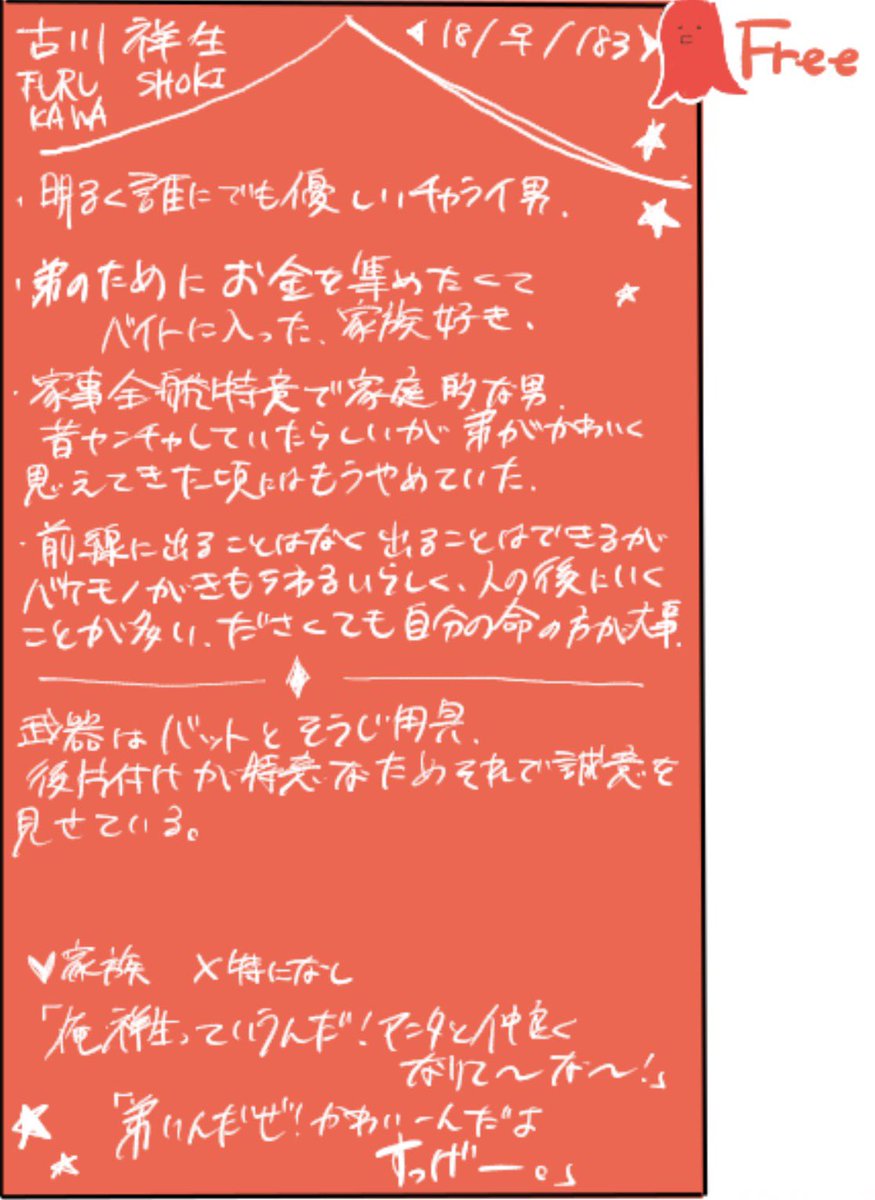 古川 祥生
FURU SHOKI
KAWA
18/♀/183
Free
・明るく誰にでも優しいチャライ男.
・弟のためにお金を集めたくて
バイトに入った、家族好き、
・家事全般特意で家庭的な男.
昔ヤンチャしていたらしいが弟がかわいく
思えてきた頃にはもうやめていた.
・前線に出ることはなく出ることはできるが
バケモノがきもちわるいらしく、人の後にいく
ことが多い、ださくても自分の命の方が大事.
武器はバットとそうじ用具、
後片付けが特意なためそれで誠意を
見せている。
♥家族 ×特になし
「俺祥生っていうんだ!アンタと仲良く
なりて〜な〜!」
「弟いんだぜ!かわいーんだよ
すっげー。」